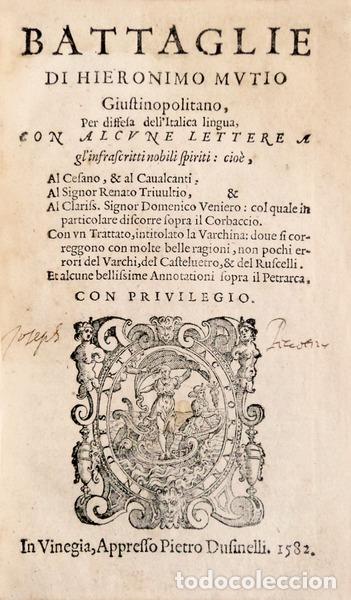 BATTAGLIE
DI HIERONIMO MVTIO
Giuſtinopolitano,
Per diffeſa dell'Italica lingua,
CON ALCVNE LETTERE A
gl'infraſcritti nobili ſpiriti: cioè,
Al Ceſano, & al Caualcanti.
Al Signor Renato Triuultio, &
Al Clariſs. Signor Domenico Veniero: col quale in
particolare diſcorre ſopra il Corbaccio.
Con vn Trattato, intitolato la Varchina: doue ſi cor-
reggono con molte belle ragioni, non pochi er-
rori del Varchi, del Caſteluetro, & del Ruſcelli.
Et alcune belliſsime Annotationi ſopra il Petrarca.
CON PRIVILEGIO.
Joseph
In Vinegia, Appreſſo Pietro Duſinelli. 1582.
todocoleccion
todocoleccion.net